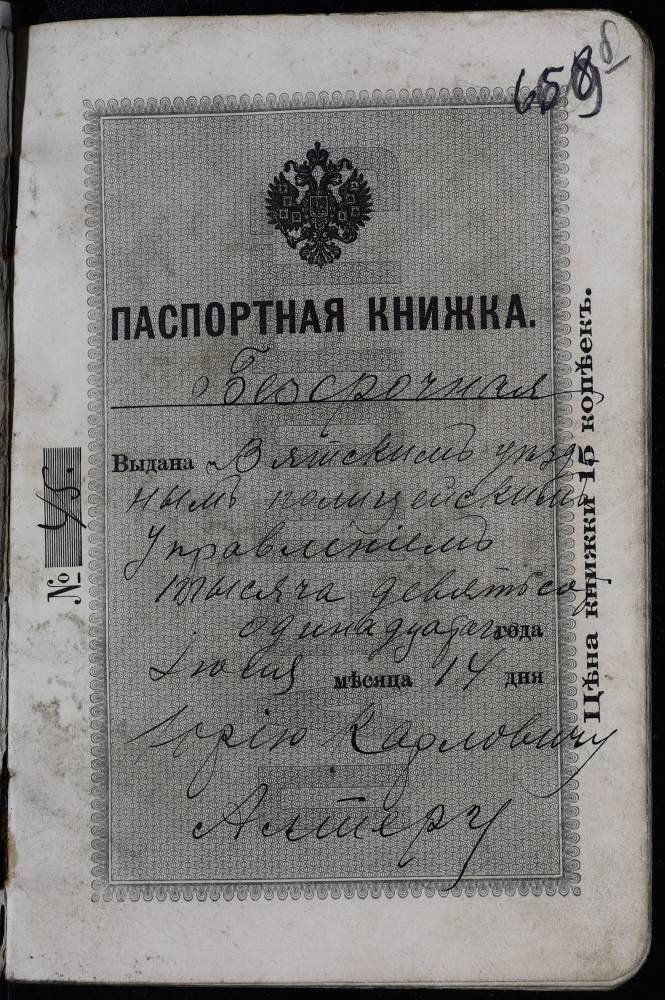 658
ПАСПОРТНАЯ КНИЖКА.
Безсрочная
Выдана Вятскимъ уѣзд
нымъ полицейскимъ
Управленіемъ
тысяча девятьсо
одинадцатаго года
Іюля мѣсяца 14 дня
Юрію Карловичу
Алтеру
№ 45.
Цѣна книжки 15 копѣекъ.